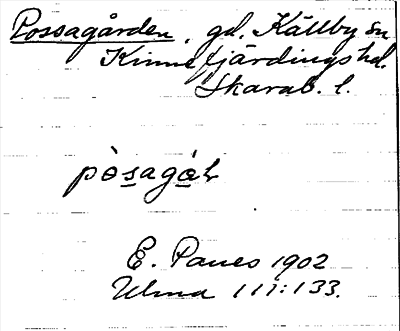 Possagården, gd, Källby sn
Kinnefjärdings hd.
Skarab. l.
pòsagáɷ
E. Panes 1902
Ulma 111:133.